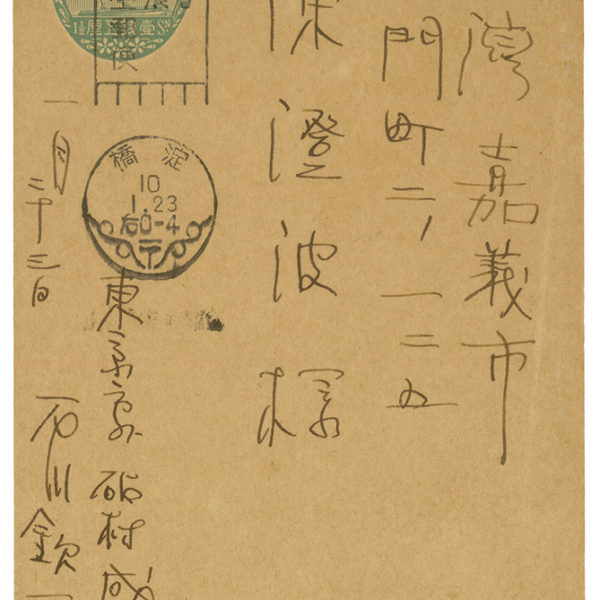 灣嘉義市
門町二ノ一二五
陳澄波様
壹錢五厘
郵便
淀橋
10
1.23
后0-4
東京府砧村成
一月二十三日
石川欽一